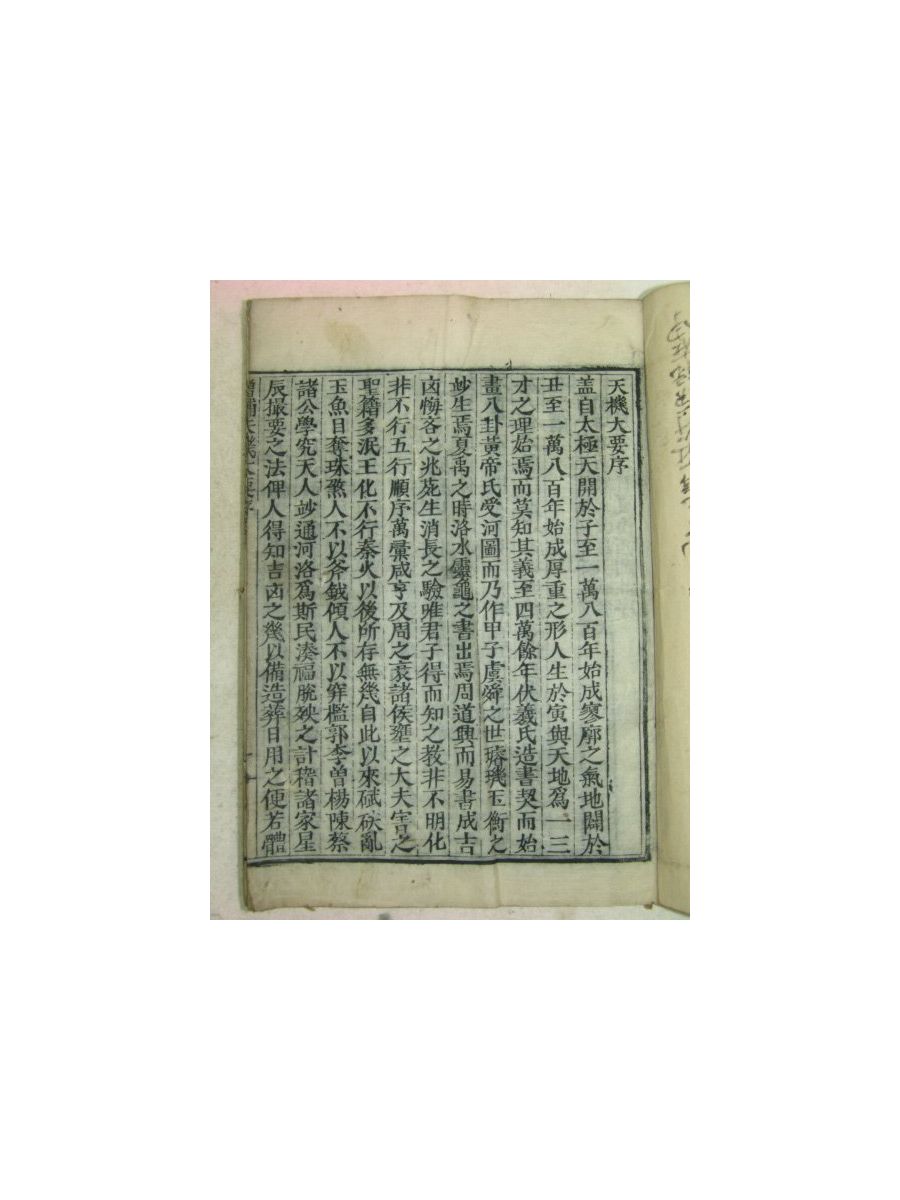 天機大要序
盖自太極天開於子至一萬八百年始成寥廓之氣地闢於
丑至一萬八百年始成厚重之形人生於寅與天地爲一三
才之理始焉而莫知其義至四萬餘年伏羲氏造書契而始
畫八卦黃帝氏受河圖而乃作甲子虞舜之世璿璣玉衡之
妙生焉夏禹之時洛水靈龜之書出焉周道興而易書成吉
凶悔吝之兆莣生消長之驗唯君子得而知之教非不明化
非不行五行順序萬彙咸亨及周之衰諸侯壅之大夫害之
聖籍多泯王化不行秦火以後所存無幾自此以來碔砆亂
玉魚目奪珠煞人不以斧鉞傾人不以穽檻郭李曾楊陳蔡
諸公學究天人妙通河洛爲斯民湊福脫殃之計稽諸家星
辰撮要之法俾人得知吉凶之幾以備造葬日用之便若體
增補天機大要序